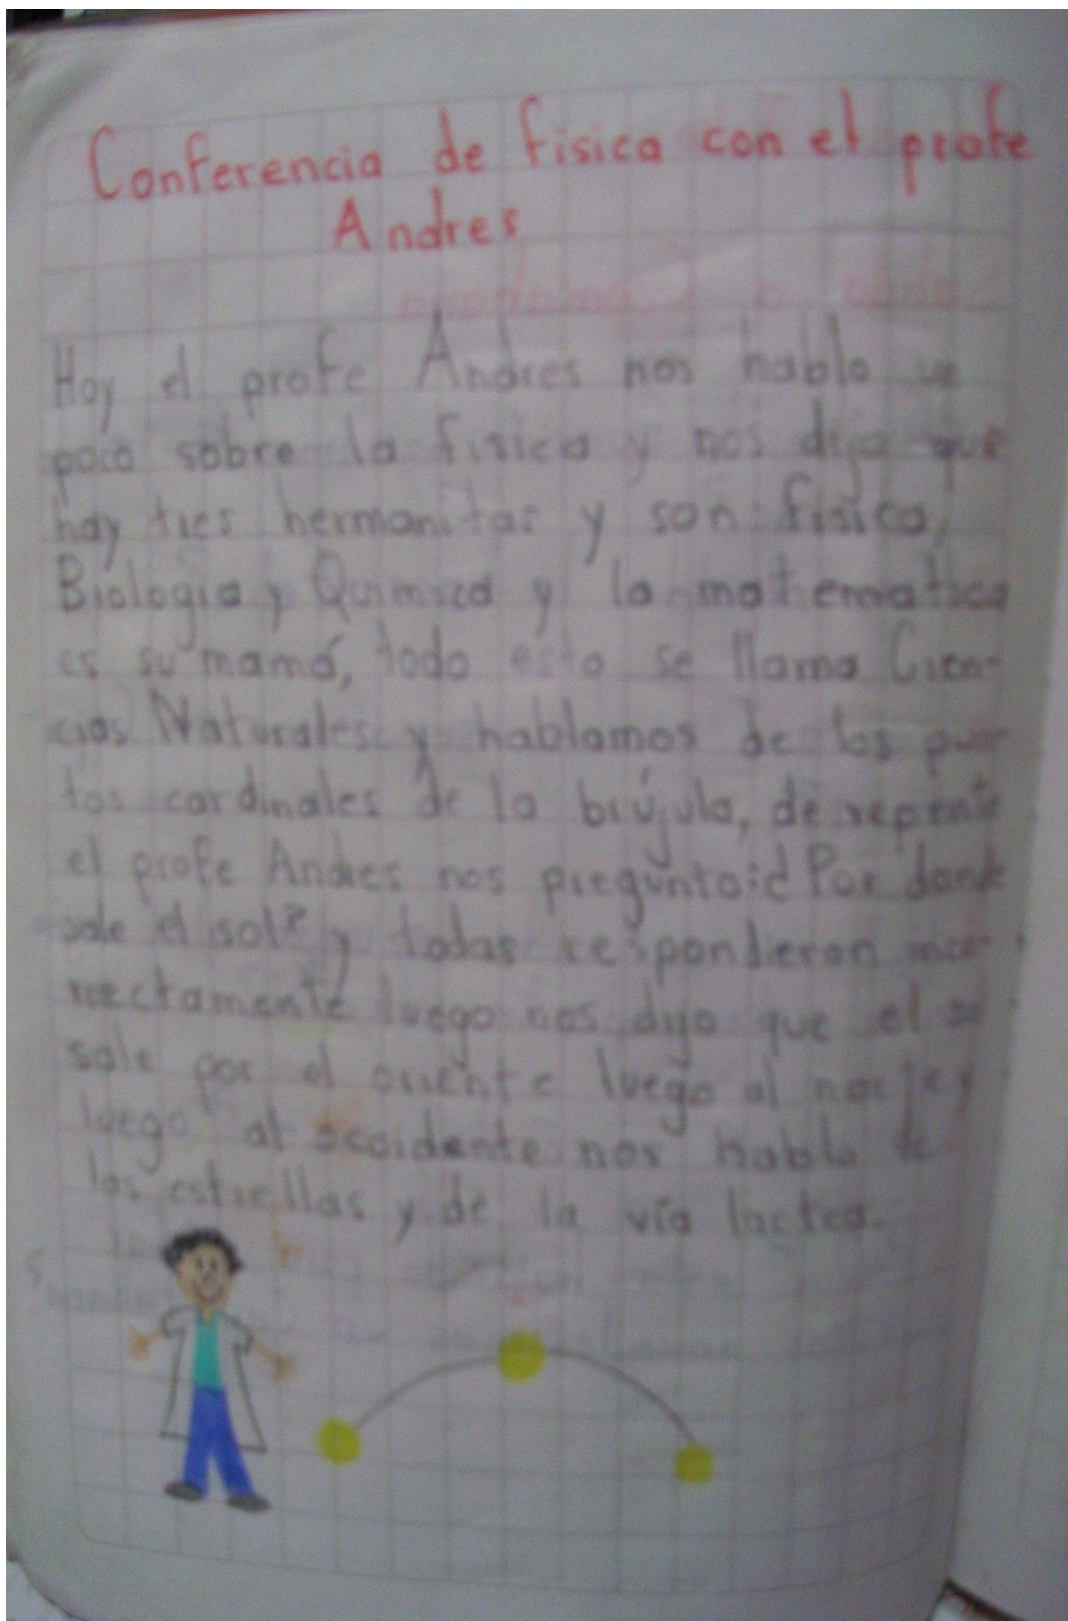 Conferencia de fisica con el profe
Andres
Hoy el profe Andres nos hablo un
poco sobre la fisica y nos dijo que
hay tres hermanitas y son fisica,
Biologia y Quimica y la matematica
es su mamá, todo esto se llama Cien-
cias Naturales y hablamos de los pun-
tos cardinales de la brújula, de repente
el profe Andres nos pregunto:¿Por donde
sale el sol? y todas respondieron
rrectamente luego nos dijo que el
sale por el oriente luego al norte y
luego al occidente nos hablo de
las estrellas y de la vía lactea.